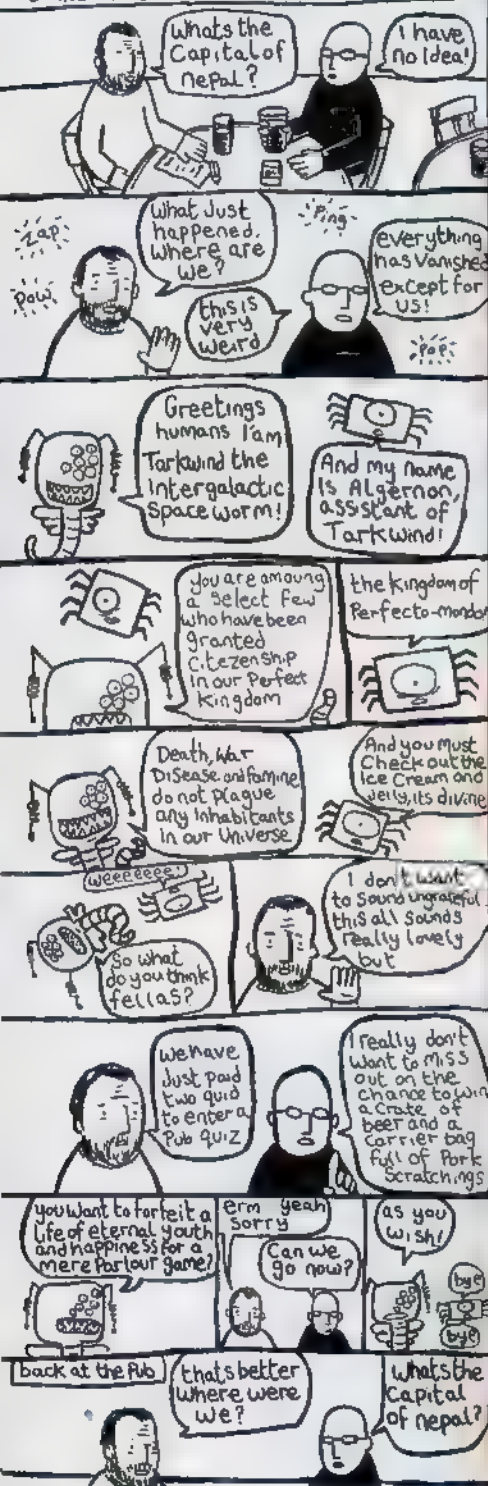 Whats the
Capital of
nepal?
I have
no Idea!
Zap
Pow
What Just
happened.
Where are
we?
this is
very
weird
Ping
everything
has vanished
except for
us!
Pop
Greetings
humans I am
Tarkwind the
Intergalactic
Space worm!
And my name
Is Algernon,
assistant of
Tarkwind!
you are amoung
a Select few
who have been
granted
Citezenship
in our Perfect
Kingdom
the Kingdom of
Perfecto-mondo
Death, War
Disease and famine
do not Plague
any inhabitants
in our Universe
And you Must
Check out the
Ice Cream and
Jelly, its divine
weeeeeee!
So what
do you think
fellas?
I don't want
to Sound ungrateful
this all Sounds
really lovely
but
we have
Just Paid
two quid
to enter a
Pub quiz
I really don't
want to Miss
out on the
chance to win
a crate of
beer and a
Carrier bag
full of Pork
Scratchings
you want to forfeit a
life of eternal youth
and happiness for a
mere Parlour game?
erm yeah
Sorry
Can we
go now?
as you
wish!
bye
bye
back at the Pub
thats better
Where were
we?
Whats the
Capital
of nepal?